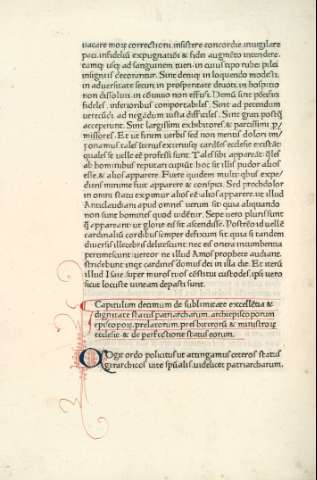 vacare morum correctioni. insistere concordie. invigilare
paci. infideliū expugnatiōi & fidei augmēto intendere.
eamque usque ad sanguinem tueri. in cuius tipo rubei pilei
insigniis decorantur. Sint denique in loquendo modesti.
in adversitate securi. in prosperitate devoti. in hospitio
non dissoluti. in convivio non effusi. Demū sint potioribus
fideles. inferioribus comportabiles. Sint ad petendum
verecūdi. ad negādum iusta difficiles. Sint grati postquā
acceperint. Sint largissimi exhibitores & parcissimi
missores. Et ut finem verbis sed non mentis dolori
ponamus. tales
se velle eē professi sunt. Tales sibi appareāt quales
ab hominibus reputari cupiūt hoc sit illis pudor aliud
esse. & aliud apparere. Fuere quidem multi quibus
diens minime fuit apparere & conspici. Sed prochdolor
in omni statu experimur aliis eē. aliis apparere. ut illud
Anticlaudiani apud omnes verum sit. quia aliquando
non sunt homines quod vidētur. Sepe vero plurisunt
que appareant. ut gloria ei sit ascendisse. Postremo velle
cardinalis cordibus semper defixum sit. quia si tandem
diversis illecebris delitescunt. nec eis onera incumbentia
peremiscunt. vereor ne illud Amos prophete audiant.
Stridebunt inquit cardines domus dei in illa die. Et iterū
illud Isaie. super muros tuos cōstitui custodes. ipsi vero
sicut locuste vineam depasti sunt.
Capitulum decimum de sublimitate excellētia &
dignitate status patriarcharum. archiepiscoporum
episcoporum. prelatorum. presbiterorū & ministrorum
ecclesie & de perfectione status eorum.
Cogit ordo policitus ut attingamus ceteros status
gerarchicos vite spūalis. videlicet patriarcharum.